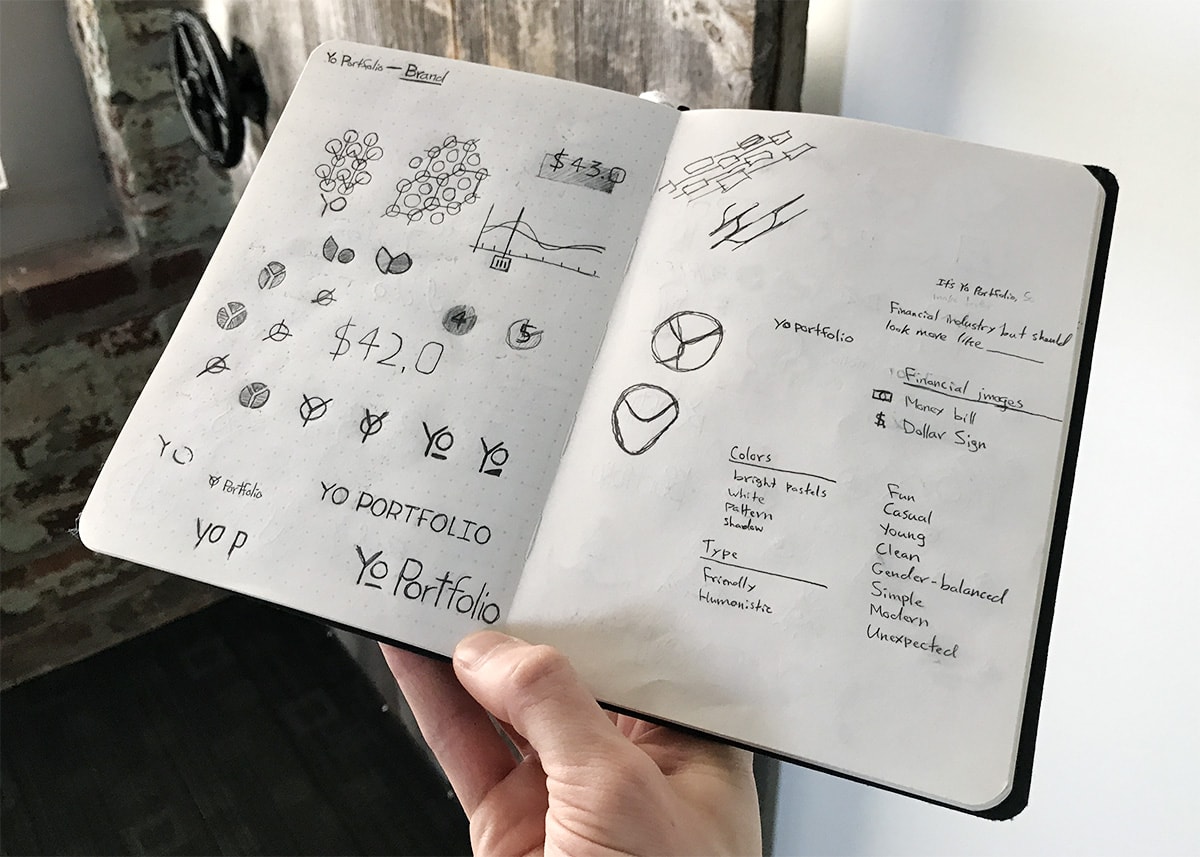 Yo Portfolio — Brand
$43.0
YO
4
5
$42.0
Yo
Yo
YO
Portfolio
YO PORTFOLIO
YO P
Yo Portfolio
It's Yo Portfolio,
Financial industry but should
look more like ______
yo portfolio
Financial images
Money bill
$ Dollar Sign
Colors
bright pastels
White
Pattern
shadow
Type
Friendly
Humonistic
Fun
Casual
Young
Clean
Gender-balanced
Simple
Modern
Unexpected